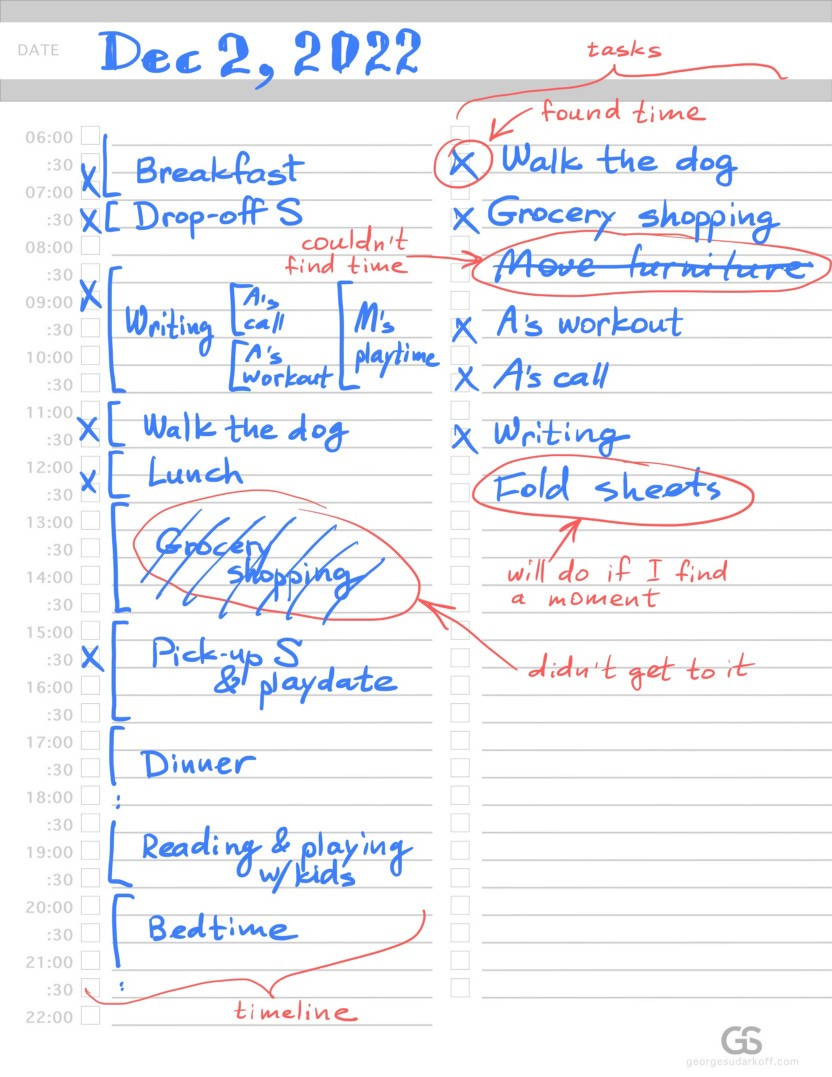 DATE Dec 2, 2022
tasks
found time
06:00
:30 X Breakfast
07:00
:30 X Drop-off S
08:00
:30
09:00 X
:30 Writing
A's
call
10:00
A's
workout
M's
playtime
:30
11:00
:30 X Walk the dog
12:00
:30 X Lunch
13:00
:30 Grocery
14:00 shopping
:30
15:00
:30 X Pick-up S
16:00 & playdate
:30
17:00
:30 Dinner
18:00 :
:30
19:00 Reading & playing
:30 w/ kids
20:00
:30 Bedtime
21:00
:30 :
22:00
timeline
X Walk the dog
X Grocery shopping
couldn't
find time
Move furniture
X A's workout
X A's call
X Writing
Fold sheets
will do if I find
a moment
didn't get to it
GS
georgesudarkoff.com